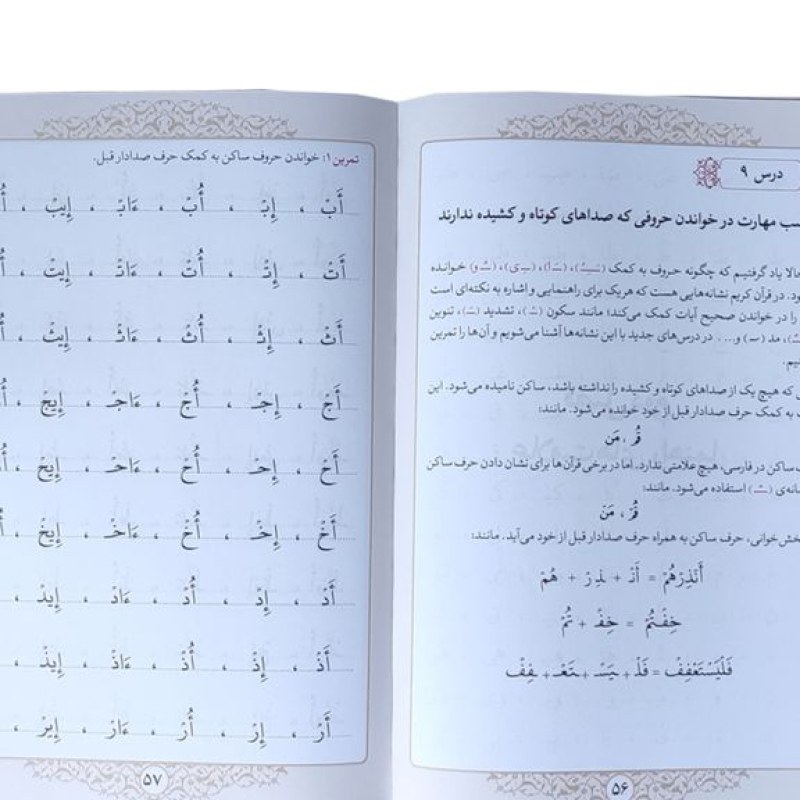 درس ۹
مهارت در خواندن حروفی که صداهای کوتاه و کشیده ندارند
حالا یاد گرفتیم که چگونه حروف به کمک (ـَـِـُ)، (ـَا)، (ـِی)، (ـُو) خوانده
در قرآن کریم نشانه‌هایی هست که هریک برای راهنمایی و اشاره به نکته‌ای است
را در خواندن صحیح آیات کمک می‌کند؛ مانند سکون (ـْ)، تشدید (ـّ)، تنوین
مد (ـٓ) و... . در درس‌های جدید با این نشانه‌ها آشنا می‌شویم و آن‌ها را تمرین
که هیچ یک از صداهای کوتاه و کشیده را نداشته باشد، ساکن نامیده می‌شود. این
به کمک حرف صدادار قبل از خود خوانده می‌شود. مانند:
قُر ، مَن
ساکن در فارسی، هیچ علامتی ندارد. اما در برخی قرآن‌ها برای نشان دادن حرف ساکن
(ـْ) استفاده می‌شود. مانند:
قُرْ ، مَنْ
بخش خوانی، حرف ساکن به همراه حرف صدادار قبل از خود می‌آید. مانند:
أَنْذِرْهُمْ = أَنْـ + ـذِرْ + هُمْ
خِفْتُمْ = خِفْـ + تُمْ
فَلْيَسْتَعْفِفْ = فَلْـ + ـيَسْـ + ـتَعْـ + ـفِفْ
۵۶
تمرین ۱: خواندن حروف ساکن به کمک حرف صدادار قبل.
أَبْ ، إِبْ ، أُبْ ، ءَابْ ، إِيبْ ،
أَتْ ، إِتْ ، أُتْ ، ءَاتْ ، إِيتْ ،
أَثْ ، إِثْ ، أُثْ ، ءَاثْ ، إِيثْ ،
أَجْ ، إِجْـ ، أُجْ ، ءَاجْـ ، إِيجْ ،
أَحْ ، إِحْـ ، أُحْ ، ءَاحْـ ، إِيحْ ،
أَخْ ، إِخْـ ، أُخْ ، ءَاخْـ ، إِيخْ ،
أَدْ ، إِدْ ، أُدْ ، ءَادْ ، إِيدْ ،
أَذْ ، إِذْ ، أُذْ ، ءَاذْ ، إِيذْ ،
أَرْ ، إِرْ ، أُرْ ، ءَارْ ، إِيرْ ،
۵۷